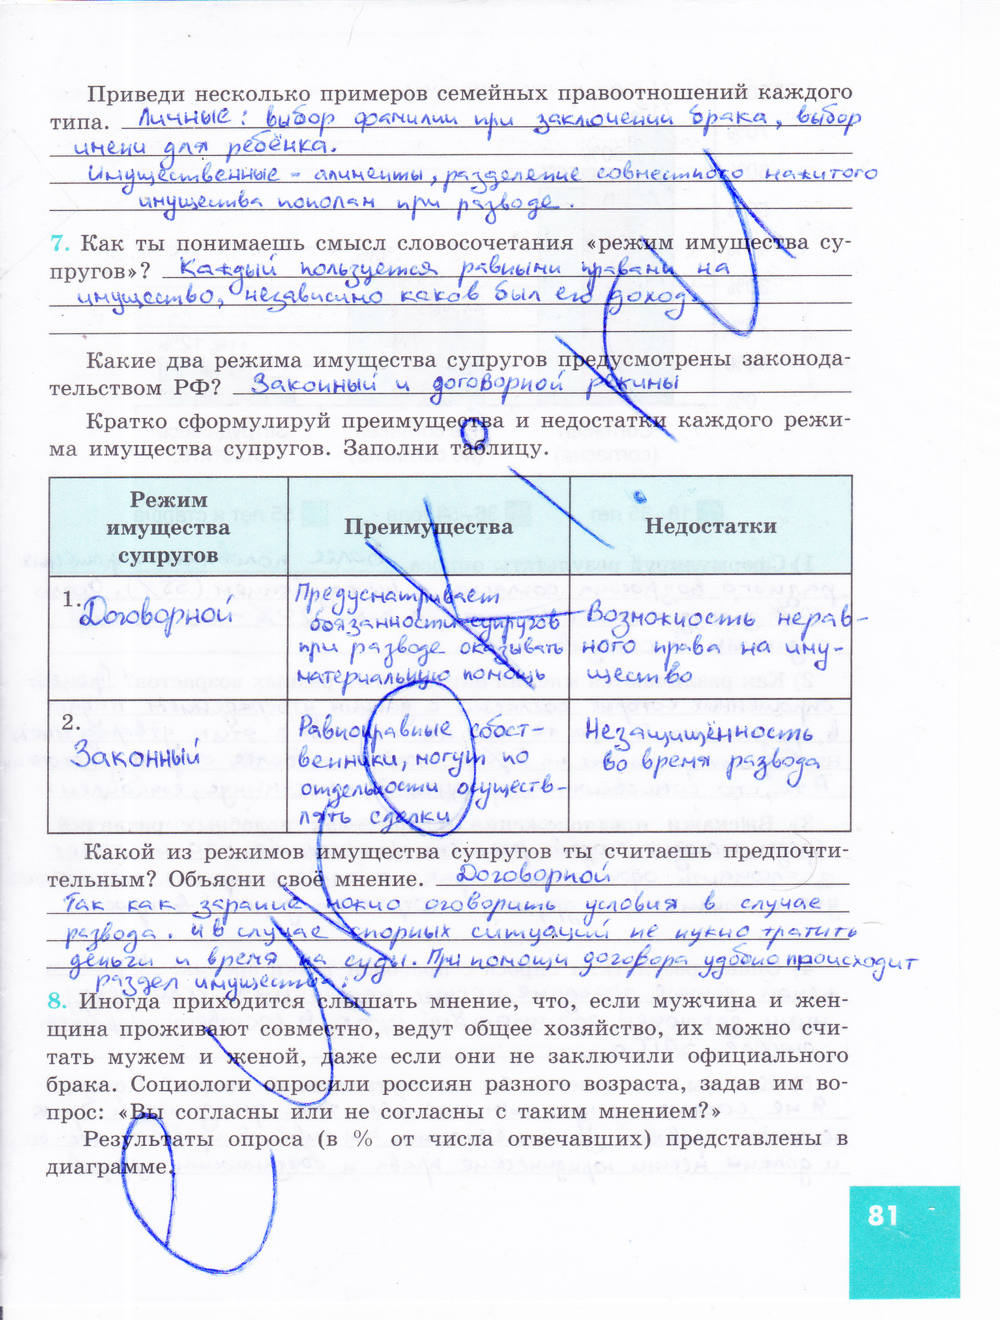 Приведи несколько примеров семейных правоотношений каждого
типа. Личные: выбор фамилии при заключении брака, выбор
имени для ребёнка.
Имущественные - алименты, разделение совместного нажитого
имущества пополам при разводе.
7. Как ты понимаешь смысл словосочетания «режим имущества су-
пругов»? Каждый пользуется равными правами на
имущество, независимо каков был его доход.
Какие два режима имущества супругов предусмотрены законода-
тельством РФ? Законный и договорной режимы
Кратко сформулируй преимущества и недостатки каждого режи-
ма имущества супругов. Заполни таблицу.
Режим
имущества
супругов
Преимущества
Недостатки
1. Договорной
Предусматривает
обязанности супругов
при разводе оказывать
материальную помощь
Возможность нерав-
ного права на иму-
щество
2.
Законный
Равноправные собст-
венники, могут по
отдельности осуществ-
лять сделки
Незащищённость
во время развода
Какой из режимов имущества супругов ты считаешь предпочти-
тельным? Объясни своё мнение. Договорной
Так как зарание можно оговорить условия в случае
развода. И в случае спорных ситуаций не нужно тратить
деньги и время на суды. При помощи договора удобно происходит
раздел имущества.
8. Иногда приходится слышать мнение, что, если мужчина и жен-
щина проживают совместно, ведут общее хозяйство, их можно счи-
тать мужем и женой, даже если они не заключили официального
брака. Социологи опросили россиян разного возраста, задав им во-
прос: «Вы согласны или не согласны с таким мнением?»
Результаты опроса (в % от числа отвечавших) представлены в
диаграмме.
81